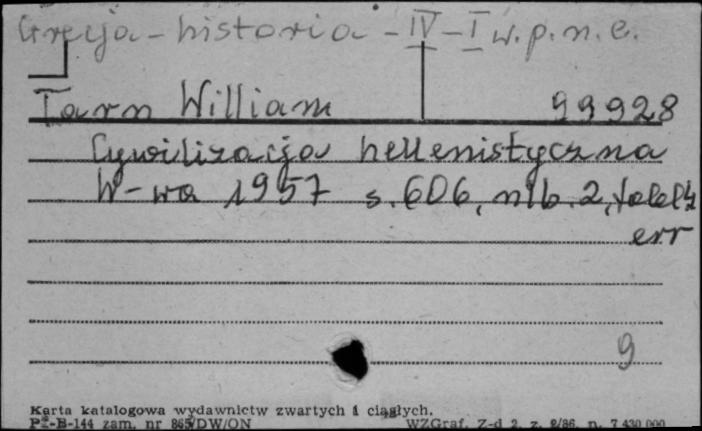 Grecja - historia - IV - I w. p. n. e.
Tarn William 99928
Cywilizacja hellenistyczna
W-wa 1957 s. 606, nlb. 2,
err
9
Karta katalogowa wydawnictw zwartych i ciągłych.
Pż-B-144 zam. nr 865/DW/ON WZGraf. Z-d 2, z. 2/86, n. 7 430 000